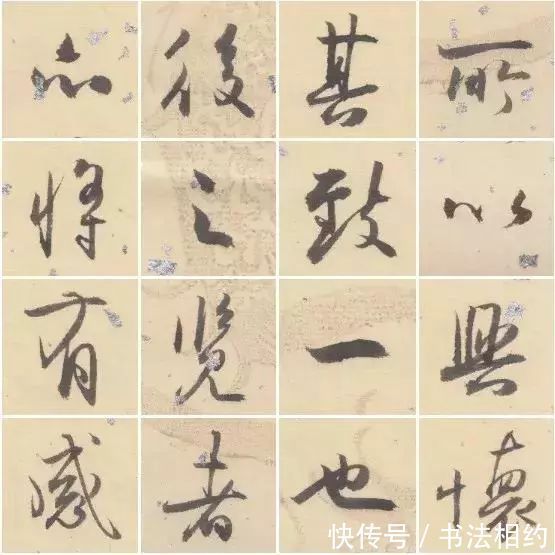 所以興懷
其致一也
後之覽者
亦將有感
快传号/书法相约